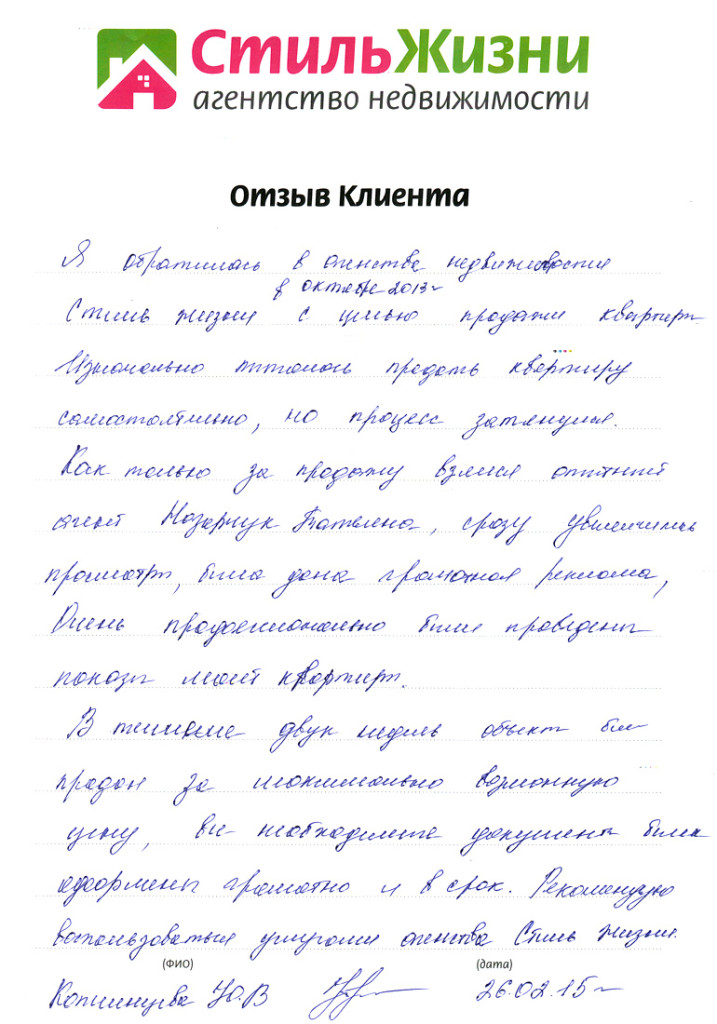 СтильЖизни
агентство недвижимости
Отзыв Клиента
Я обратилась в агенства недвижимости
в октябре 2013г
Стиль жизни с целью продажи квартиры
Изначально пыталась продать квартиру
самостоятельно, но процесс затянулся.
Как только за продажу взялся опытный
агент Назарчук Татьяна, сразу увеличились
просмотры, была дана грамотная реклама,
Очень профессионально были проведены
показы моей квартиры.
В течение двух недель объект был
продан за максимально возможную
цену, все необходимые документы были
оформлены грамотно и в срок. Рекомендую
воспользоваться услугами агенства Стиль жизни.
(ФИО) (дата)
Ю.В 26.02.15г